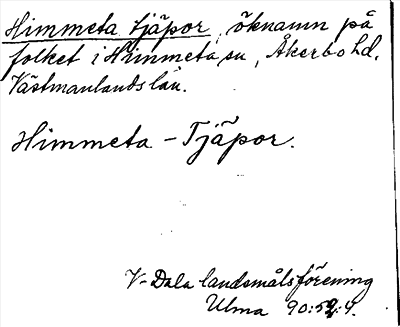 Himmeta tjäpor, öknamn på
folket i Himmeta sn, Åkerbo hd,
Västmanlands län.
Himmeta - Tjäpor.
V-Dala landsmålsförening
Ulma 90:52:4.